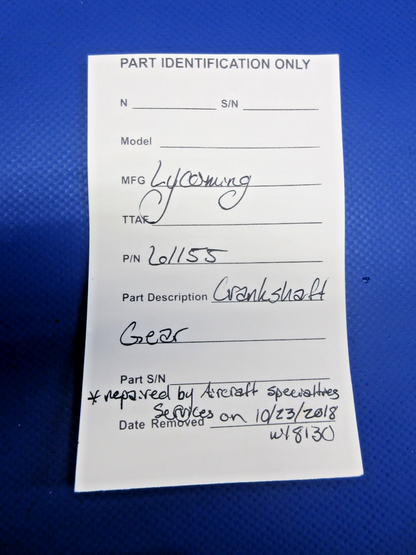 PART IDENTIFICATION ONLY
N S/N
Model
MFG Lycoming
TTAF
P/N 61155
Part Description Crankshaft
Gear
Part S/N
* repaired by Aircraft specialties
Services on 10/23/2018
Date Removed
w/8130